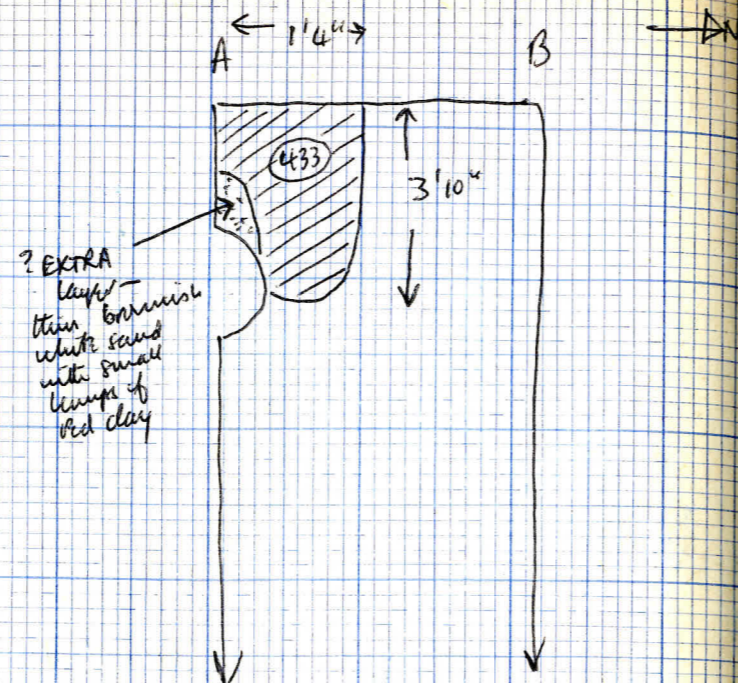 1'4"
N
A
B
433
3'10"
? EXTRA
layer –
thin brownish
white sand
with small
lumps of
red clay